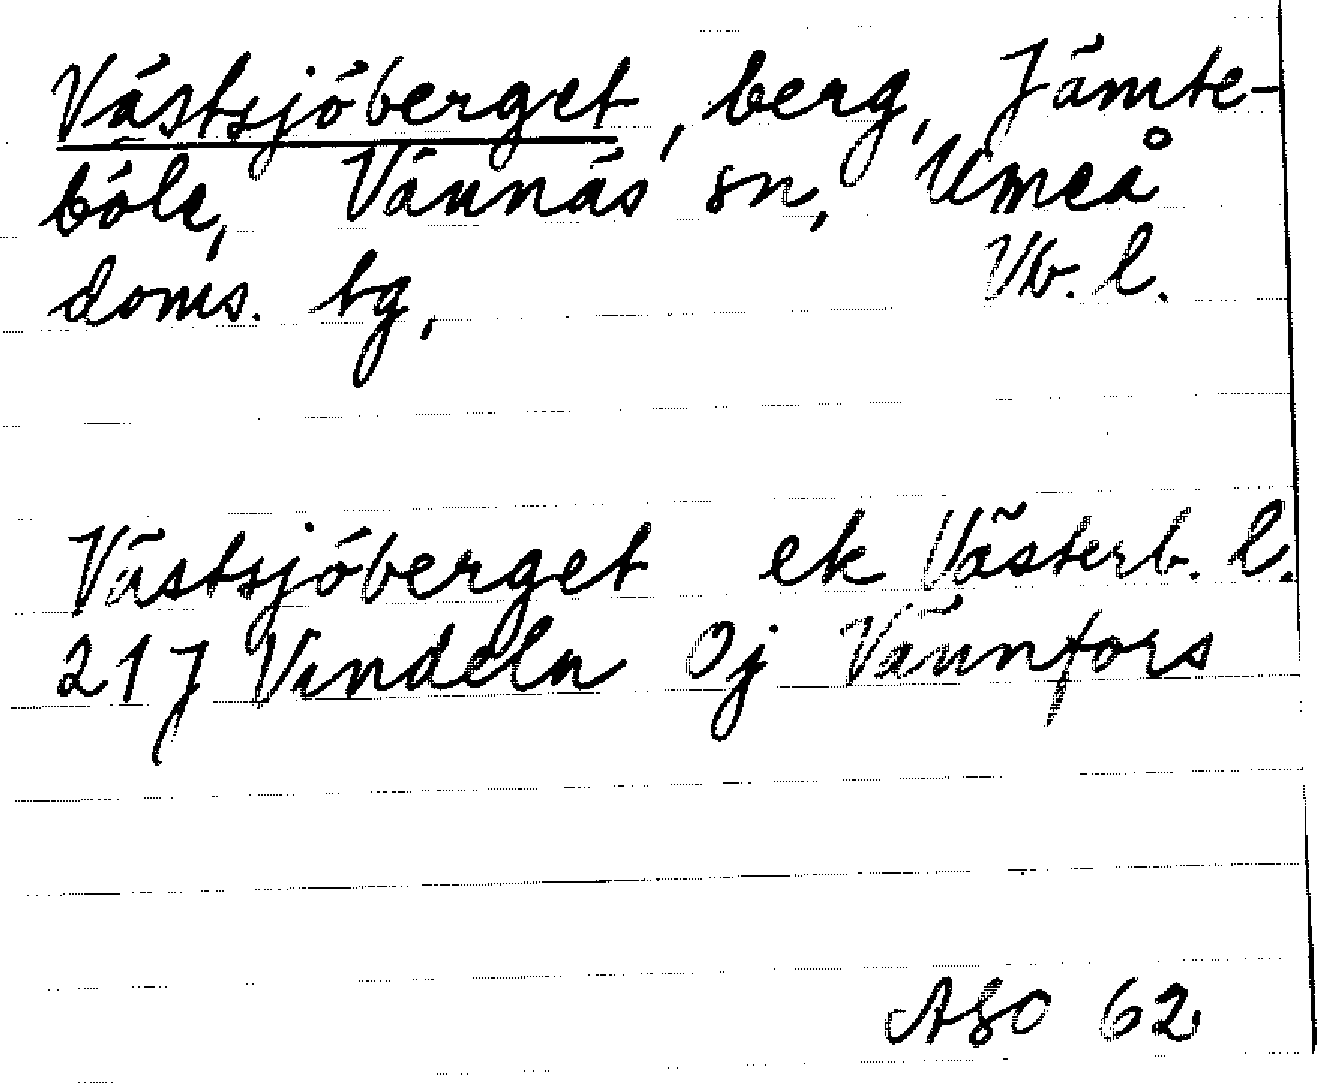 Västsjöberget, berg, Jämte-
böle, Vännäs sn, Umeå
doms. tg, Vb. l.
Västsjöberget ek Västerb. l.
21J Vindeln Oj Vännfors
ASO 62